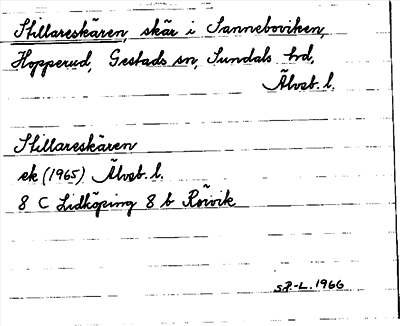 Stillareskären, skär i Sanneboviken,
Hopperud, Gestads sn, Sundals hd,
Älvsb. l.
Stillareskären
ek (1965) Älvsb. l.
8 C Lidköping 8 b Rörvik
SP-L. 1966